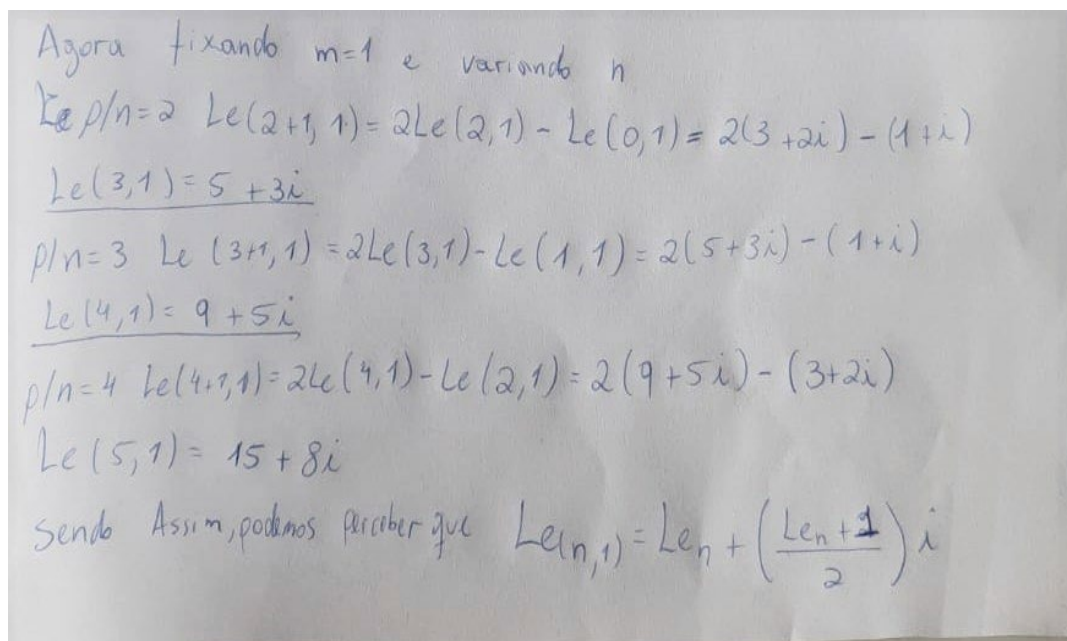 Agora fixando m=1 e variando n
p/n=2 Le(2+1, 1)= 2Le(2,1) - Le(0,1)= 2(3+2i) - (1+i)
Le(3,1)= 5 +3i
p/n=3 Le (3+1,1) =2Le(3,1)-Le(1,1)=2(5+3i)-(1+i)
Le(4,1)= 9 +5i
p/n=4 Le(4+1,1)=2Le(4,1)-Le(2,1)=2(9+5i)-(3+2i)
Le (5,1)= 15+8i
Sendo Assim, podemos perceber que Le(n,1)=Leₙ + ((Leₙ+1)/2) i